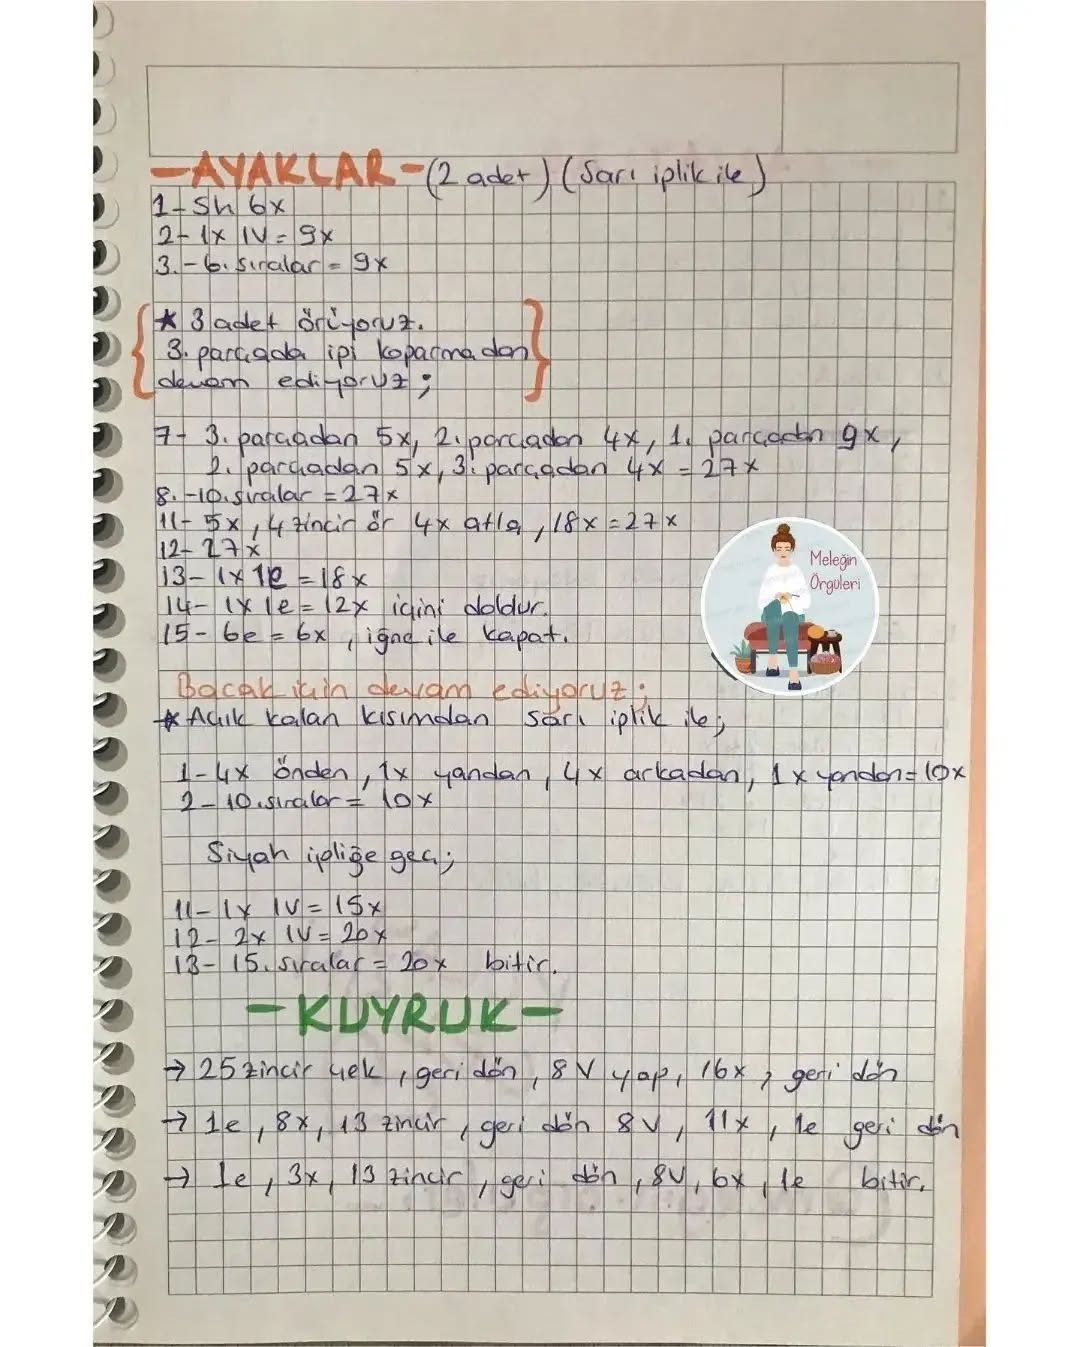 -AYAKLAR-(2 adet) (Sarı iplik ile)
1- Sh 6x
2- 1x 1V = 9x
3.-6. sıralar = 9x
* 3 adet örüyoruz.
3. parçada ipi koparmadan
devam ediyoruz ;
7- 3. parçadan 5x, 2. parçadan 4x, 1. parçadan 9x,
2. parçadan 5x, 3. parçadan 4x = 27x
8.-10. sıralar = 27x
11- 5x, 4 zincir ör 4x atla, 18x = 27x
12- 27x
13- 1x 1e = 18x
14- 1x 1e = 12x içini doldur.
15- 6e = 6x, iğne ile kapat.
Meleğin
Örgüleri
Bacak için devam ediyoruz ;
* Açık kalan kısımdan sarı iplik ile;
1- 4x önden, 1x yandan, 4x arkadan, 1x yandan = 10x
2-10. sıralar = 10x
Siyah ipliğe geç;
11- 1x 1V = 15x
12- 2x 1V = 20x
13- 15. sıralar = 20x bitir.
-KUYRUK-
→ 25 zincir çek, geri dön, 8V yap, 16x, geri dön
→ 1e, 8x, 13 zincir, geri dön 8V, 11x, 1e geri dön
→ 1e, 3x, 13 zincir, geri dön, 8V, 6x, 1e bitir.